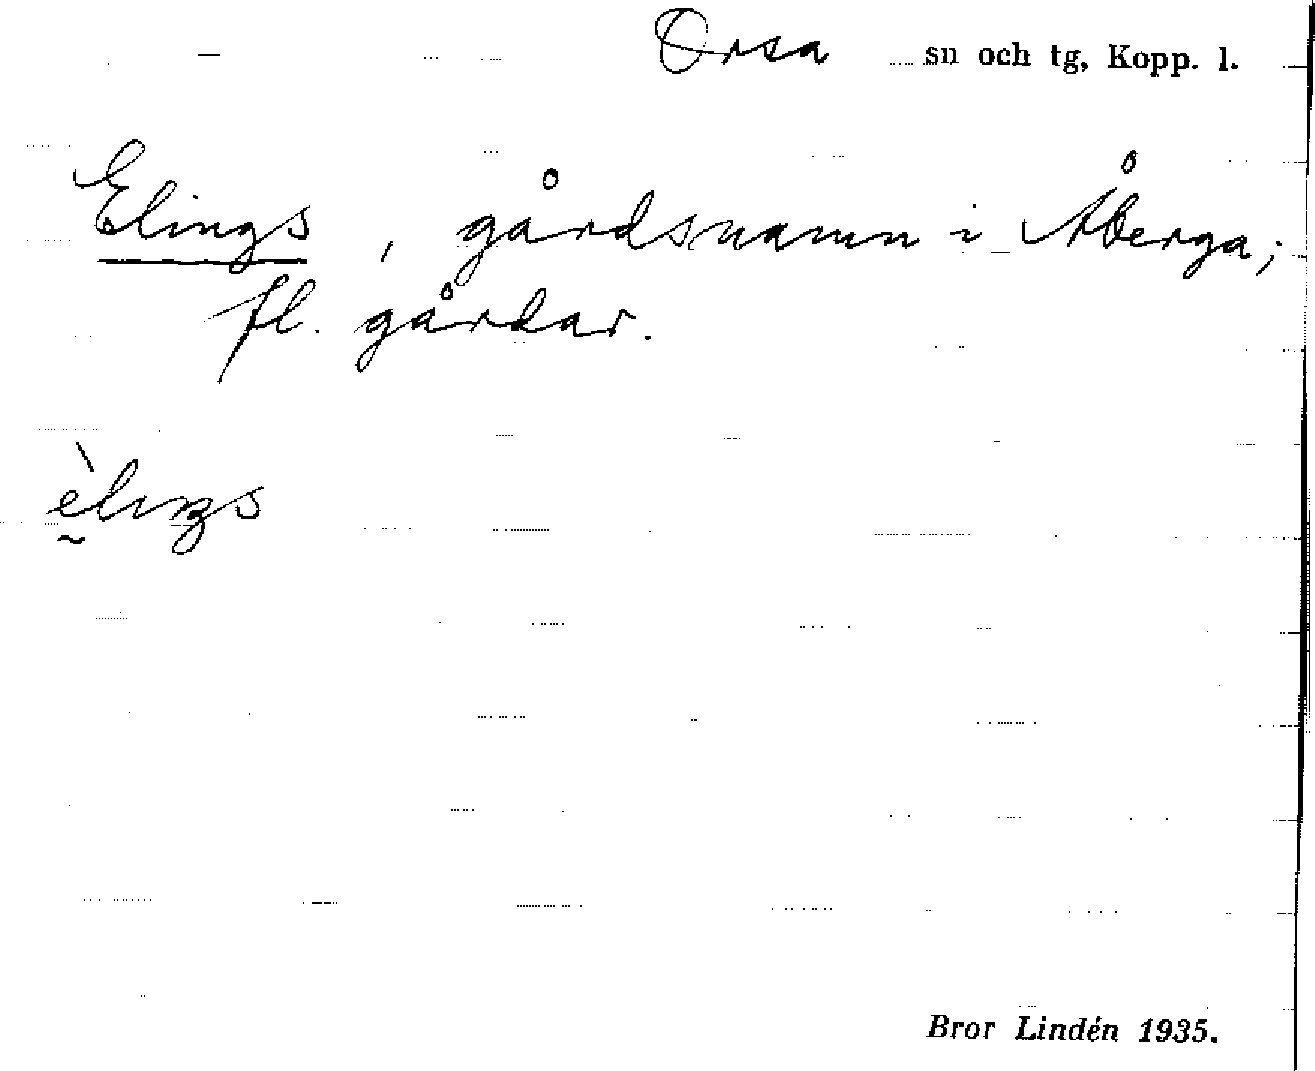 Orsa sn och tg, Kopp. l.
Elings, gårdsnamn i Åberga;
fl. gårdar.
Bror Lindén 1935.